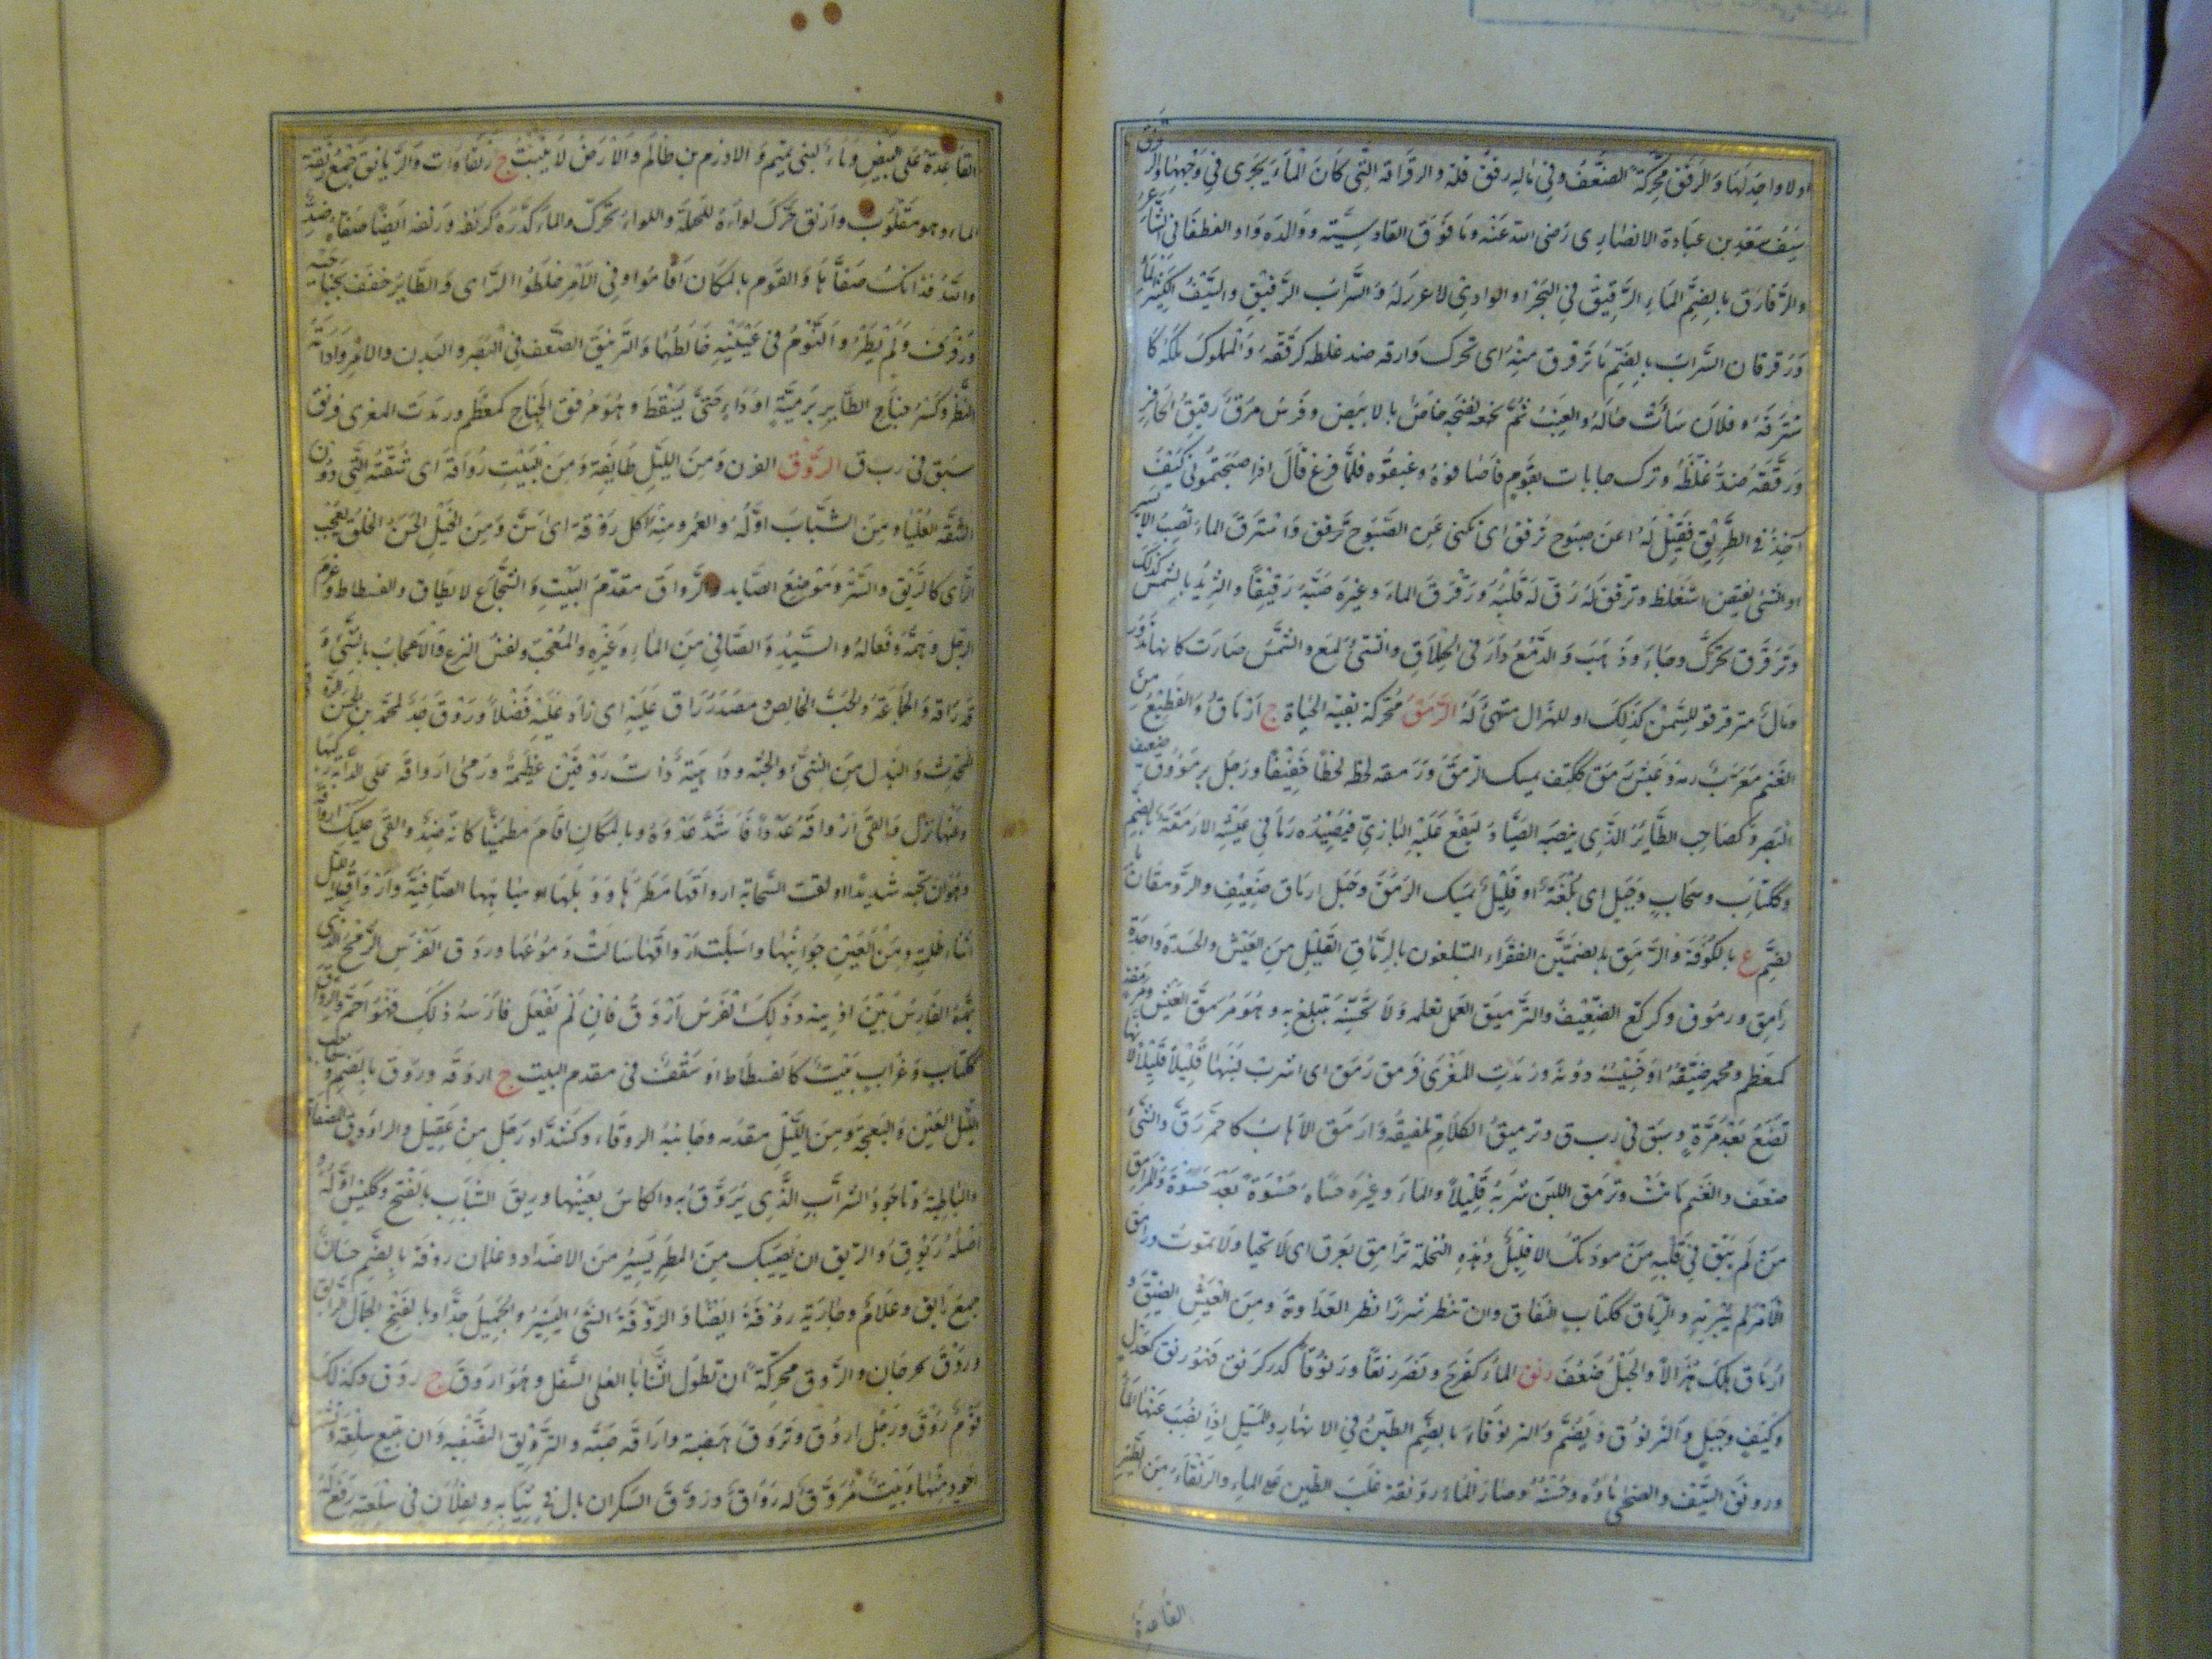 او لا واحد لها والرقق محركة الضعف وفي ماله رقق قلة والرقراقة التي كان الماء يجري في وجهها والر
سيف سعد بن عبادة الانصاري رضي الله عنه وما فوق القادسية ووالدة واو الغطفاني الشاعر
والرقارق بالضم الماء الرقيق في البحر او الوادي لا غزر له والسراب الرقيق والسيف الكثير الماء
ورقرقان السراب بالضم ما ترقرق منه اى تحرك وارقه ضد غلظه كرققه والمملوك ملكه كا
سترقه وفلان سائت حاله والعنب ثم نضجه خاص بالابيض وفرس مرق رقيق الحافر
ورققه ضد غلظه وترك جابات بقوم فاضافوه وغبقوه فلما فرغ قال اذا صبحتموني كيف
آخذ في الطريق فقيل له اعن صبوح ترقق اى تكنى عن الصبوح ترقق واسترق الماء نضب الا يسير
او الشئ نقيض استغلظ وترقق له رق له قلبه ورقرق الماء وغيره صبه رقيقا والثريد بالسمن كذلك
وترقرق تحرك وجاء وذهب والدمع دار في الحلاق والشئ لمع والشمس صارت كانها تدور
ومال مترقرق للسمن كذلك او للهزال متهئ له الرمق محركة بقية الحياة ج ارماق والقطيع من
الغنم معرب رمه وعيش رمق ككتف يمسك الرمق ورمقه لحظه لحظا خفيفا ورجل يرموق ضعيف
البصر وكصاحب الطائر الذي ينصبه الصياد ليقع عليه البازي فيصيده وما في عيشه الا رمقة بالضم
وككتاب وسحاب وجبل اى بلغة او قليل يمسك الرمق وحبل ارماق ضعيف والرومقان با
لضم ع بالكوفة والرمق بضمتين الفقراء المتبلغون بالرماق القليل من العيش والحسدة واحدة
رامق ورموق وكركع الضعيف والترميق العمل تعلمه ولا تحسنه تبتلغ به وهو مرمق العيش ومرمقه
كمعظم ومحمر ضيقه او خسيسه دونه ورمدت المعزى فرمق رمق اى اشرب لبنها قليلا قليلا لانها
تضع بعد مرة وسبق في رب ق وترميق الكلام تلفيقه وارمق الاهاب كاحمر رق والشئ
ضعف والغنم ماتت وترمق اللبن شربه قليلا والماء وغيره حساه حسوة بعد حسوة والمرامق
من لم يبق في قلبه من مودتك الا قليل وهذه النخلة ترامق بعرق اى لا تحيا ولا تموت ورامق
الامر لم يبرمه والرماق ككتاب النفاق وان تنظر شزرا نظر العداوة ومن العيش الضيق و
ارماق هلك هزالا والحبل ضعف رنق الماء كفرح ونصر رنقا ورنوقا كدر كرنق فهو رنق كعدل
وكتف وجبل والترنوق ويضم والترنوقاء بالضم الطين في الانهار والمسيل اذا نضب عنها الماء
ورونق السيف والضحى ماؤه وحسنه وصار الماء رونقة غلب الطين على الماء والرنقاء من الطير
القاعدة
القاعدة على البيض وماء لبني تيم الادرم بن ظالم والارض لا تنبت ج رنقاوات والريانق جمع رنقة
الماء وهو مقلوب وارنق حرك لواءه للحملة واللواء تحرك والماء كدره كرنقه ورنقه ايضا صفاه ضد
والله قذاتك صفاها والقوم بالمكان اقاموا وفي الامر خلطوا الراى والطائر خفق بجناحيه
ورفرف ولم يطر والنوم في عينيه خالطهما والترنيق الضعف في البصر والبدن والامر وادامة
النظر وكسر جناح الطائر برمية او داء حتى يسقط وهو مرنق الجناح كمعظم ورمدت المعزى فرنق
سبق في رب ق الروق القرن ومن الليل طايفة ومن البيت رواقه اى شقته التي دون
الشقة العليا ومن الشباب اوله والعمر ومنه اكل روقه اى اسن ومن الخيل الحسن الخلق يعجب
الرائى كالريق والستر وموضع الصايد والرواق مقدم البيت والشجاع لا يطاق والفسطاط وعزم
الرجل وهمه وفعاله والسيد والصافي من الماء وغيره والمعجب ونفس النزع والاعجاب بالشئ و
قد راقه والجماعة والحب الخالص ومصدر راق عليه اى زاد عليه فضلا وروق جد لمحمد بن الحسن
المحدث والبدل من الشئ والجثة وداهية ذات روقين عظيمة ورمى ارواقه على الدابة ركبها
وعنها نزل والقى ارواقه عدا فاشتد عدوه وبالمكان اقام مطمئنا كانه ضد والقى عليك ارواقه
وهو ان تحبه شديدا والقت السحابة ارواقها مطرها ووبلها او مياهها الصافية وارواق الليل
اثناء ظلمة ومن العين جوانبها واسبلت ارواقها سالت دموعها وروق الفرس الرمح الذي
يمده الفارس بين اذنيه وذلك الفرس اروق فان لم يفعل فارسه ذلك فهو اجم والرواق
ككتاب وغراب بيت كالفسطاط او سقف في مقدم البيت ج اروقة وروق بالضم و
الليل العين والنعجة ومن الليل مقدمه وجانبه الروقاء وكشداد رجل من عقيل والراووق المصفاة
والباطية وناجود الشراب الذي يروق به والكاس بعينها وريق الشباب بالفتح وككيس اوله
اصله ريوق والريق ان يصيبك من المطر يسير من الاضداد وغلمان روقة بالضم حسان
جمع رائق وغلام وجارية روقة ايضا والروقة الشئ اليسير والجميل جدا وبالفتح الجمال الرائق
وروق جرجان والروق محركة ان تطول الثنايا العلى السفلى وهو اروق ج روق وكذلك
قوم روق ورجل اروق وتروق هضبة واراقه صبه والترويق التصفية وان تبيع سلعة وتشتري
اجود منها وبيت مروق له رواق وروق السكران بال في ثيابه ولفلان في سلعته رفع له